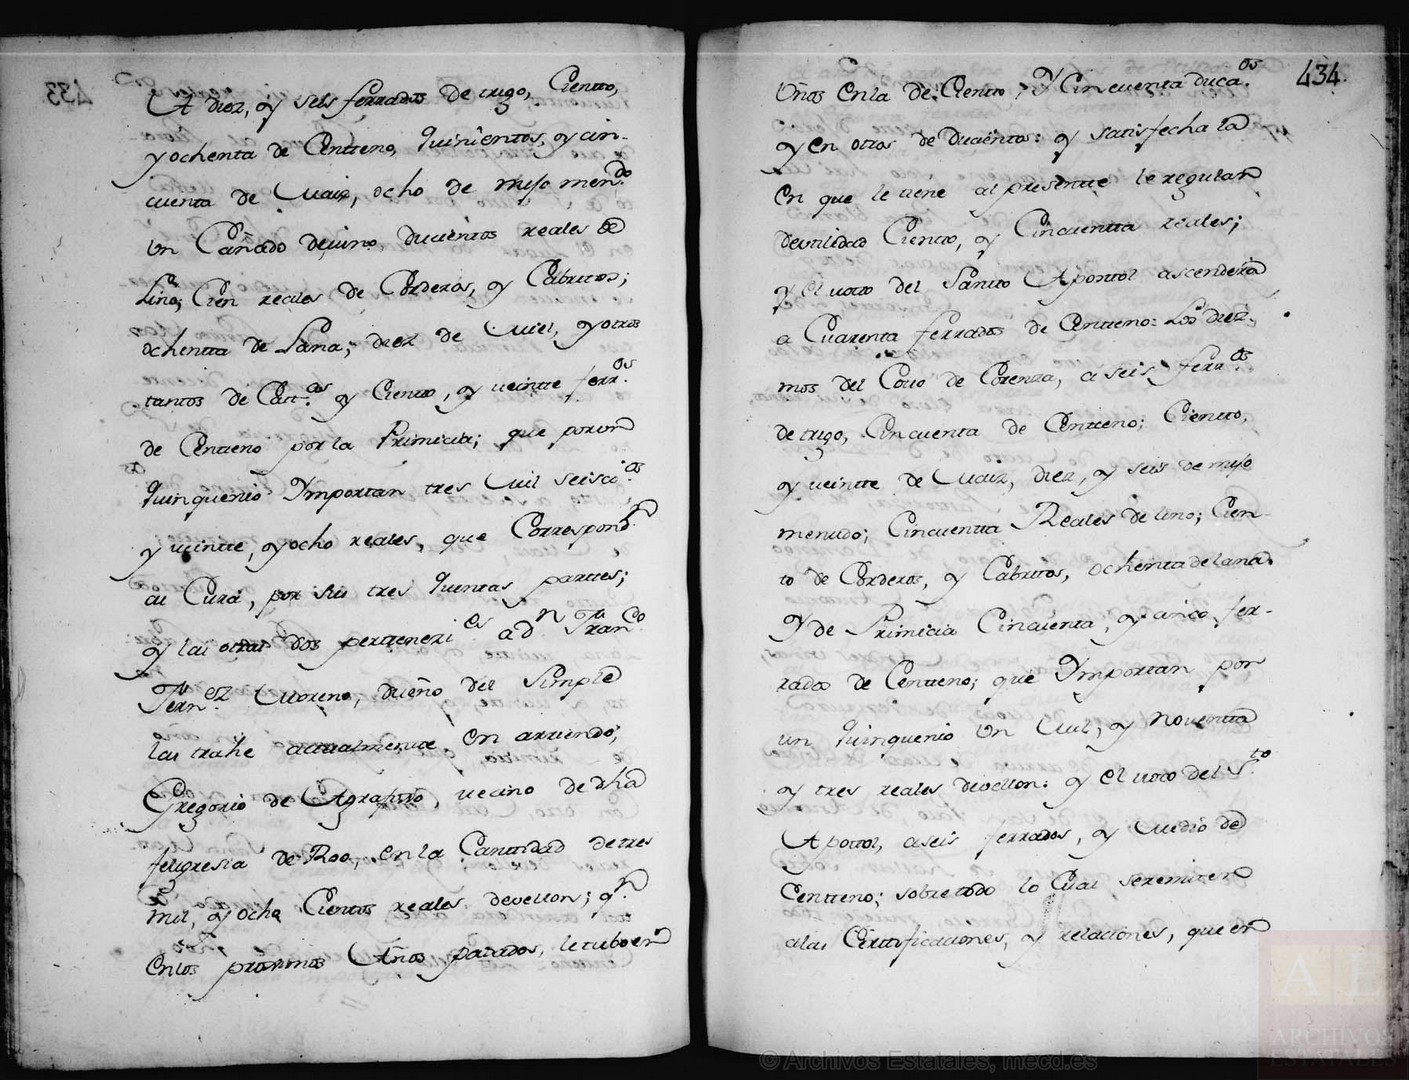 A diez, y seis ferrados de trigo, Ciento,
y ochenta de Centteno, quinientos, y cin-
cuenta de Maiz, ocho de mijo men.do
Un Cañado devino ducientos reales de
Lino; Cien reales de Corderos, y Cabritos;
ochentta de Lana; diez de Miel, y otros
tantos de Catt.os y Ciento, y veintte ferr.os
de Centteno por la Primicia; que por un
quinquenio Ymporttan tres Mil seisci.os
y veintte, y ocho reales, que Correspond.n
al Cura, por sus tres quintas parttes;
y las otras dos pertteneci.es a d.n Fran.co
Fern.ez Moreno, dueño del Simple
las trahe actualmentte en arriendo;
Gregorio de Agrafojo, vecino de dha
feligresia de Roo, en la Canttidad de tres
mil, y ocho Cientos reales devellon; q.n
en los proximos Años pasados, le tubo en
434.
Unos en la de Ciento, y Cincuentta duca.os
y en otros de Ducientos: y satisfecha la
en que le tiene al presentte le regulan
deutilidad Ciento, y Cincuentta reales;
y el voto del Santto Aposttol ascenderá
a Cuarenta ferrados de Centteno: Los diez-
mos del Coto de Corenza, a seis ferr.os
de trigo, Cincuenta de Centteno; Ciento,
y veintte de Maiz, diez, y seis de mijo
menudo; Cincuentta Reales de lino; Cien-
to de Corderos, y Cabritos, ochenta de lana,
y de Primicia Cincuenta, y cinco fer-
rados de Centeno; que Ymporttan por
un quinquenio Un Mil, y noventta
y tres reales devellon: y el voto del S.to
Aposttol, a seis ferrados, y Medio de
Centteno; sobre todo lo Cual se remiten
a las Certtificaciones, y relaciones, que en
© Archivos Estatales, mecd.es
AE
ARCHIVOS
ESTATALES